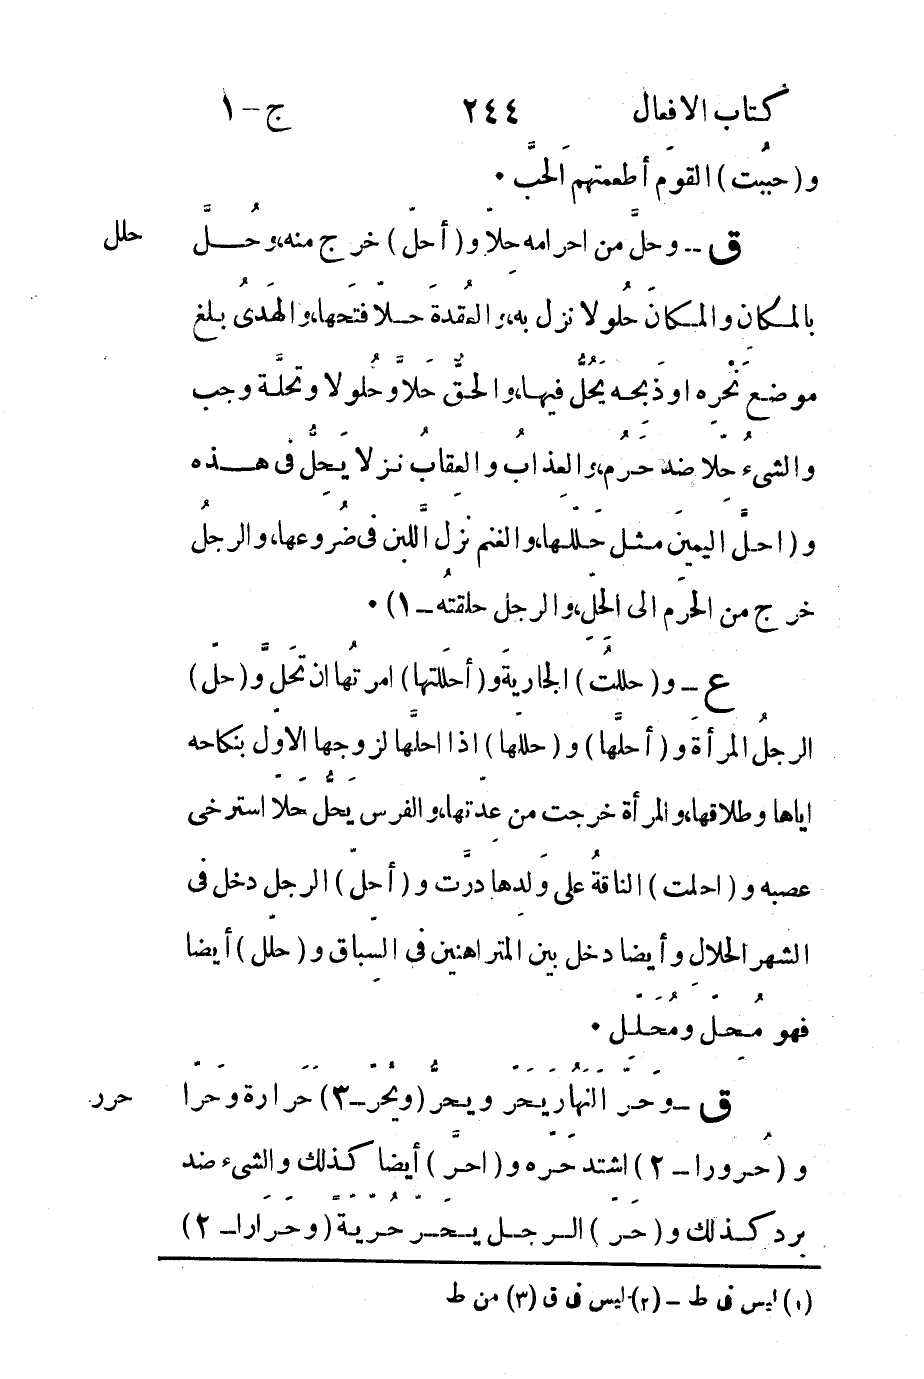 كتاب الافعال ٢٤٤ ج-١
و(حببت) القوم أطعمتهم الحَبَّ ٠
ق -- وحلَّ من احرامه حِلّا و(أحلّ) خرج منه، وحُـــلَّ حلل
بالمـكان والمـكانَ حُلولا نزل به، والعُقدةَ حــلّا فتحها، والهَدىُ بـلغ
موضـع نَحْرِه او ذَبحِـه يَحُلُّ فيهـا، والحَـقُّ حَلاًّ وحُلولا وتحلَّة وجب
والشىءُ حِلّا ضد حَرُم، والعذابُ والعِقابُ نـزل يَحِلُّ فى هـــذه
و(احلَّ اليمينَ مثـل حَلّلـها، والغنم نزل اللَّبن فى ضُروعها، والرجلُ
خرج من الحَرَم الى الحِلّ، والرجل حلقتُه – ١) ٠
ع – و(حللتُ) الجاريةَ و(أحلَلتها) امرتُها ان تَحَلَّ و(حلّ)
الرجلُ المرأةَ و(أحلَّها) و(حللها) اذا احلَّها لزوجها الاول بنكاحه
اياها وطلاقها، والمرأة خرجت من عدّتها، والفرس يَحَلُّ حَلَلا استرخى
عصبه و(احلت) الناقةُ على وَلدها درَّت و(أحلّ) الرجل دخل فى
الشهر الحلال وأيضا دخل بين المتراهنين فى السِّباق و(حلّل) أيضا
فهو مُـحِـلّ ومُحَـلِّـل ٠
ق – وحَرَّ النهارُ يَحَرّ ويحِرُّ (ويَحُرّ – ٣) حَرارة وحَرّا حرر
و(حُرورا – ٢) اشتد حَرّه و(احرَّ) أيضا كذلك والشىء ضد
بردكـذلك و(حَرّ) الـرجـل يـحَـر حُرّيـة (وحَرارا – ٢)
(١) ليس فى ط – (٢) ليس فى ق (٣) من ط